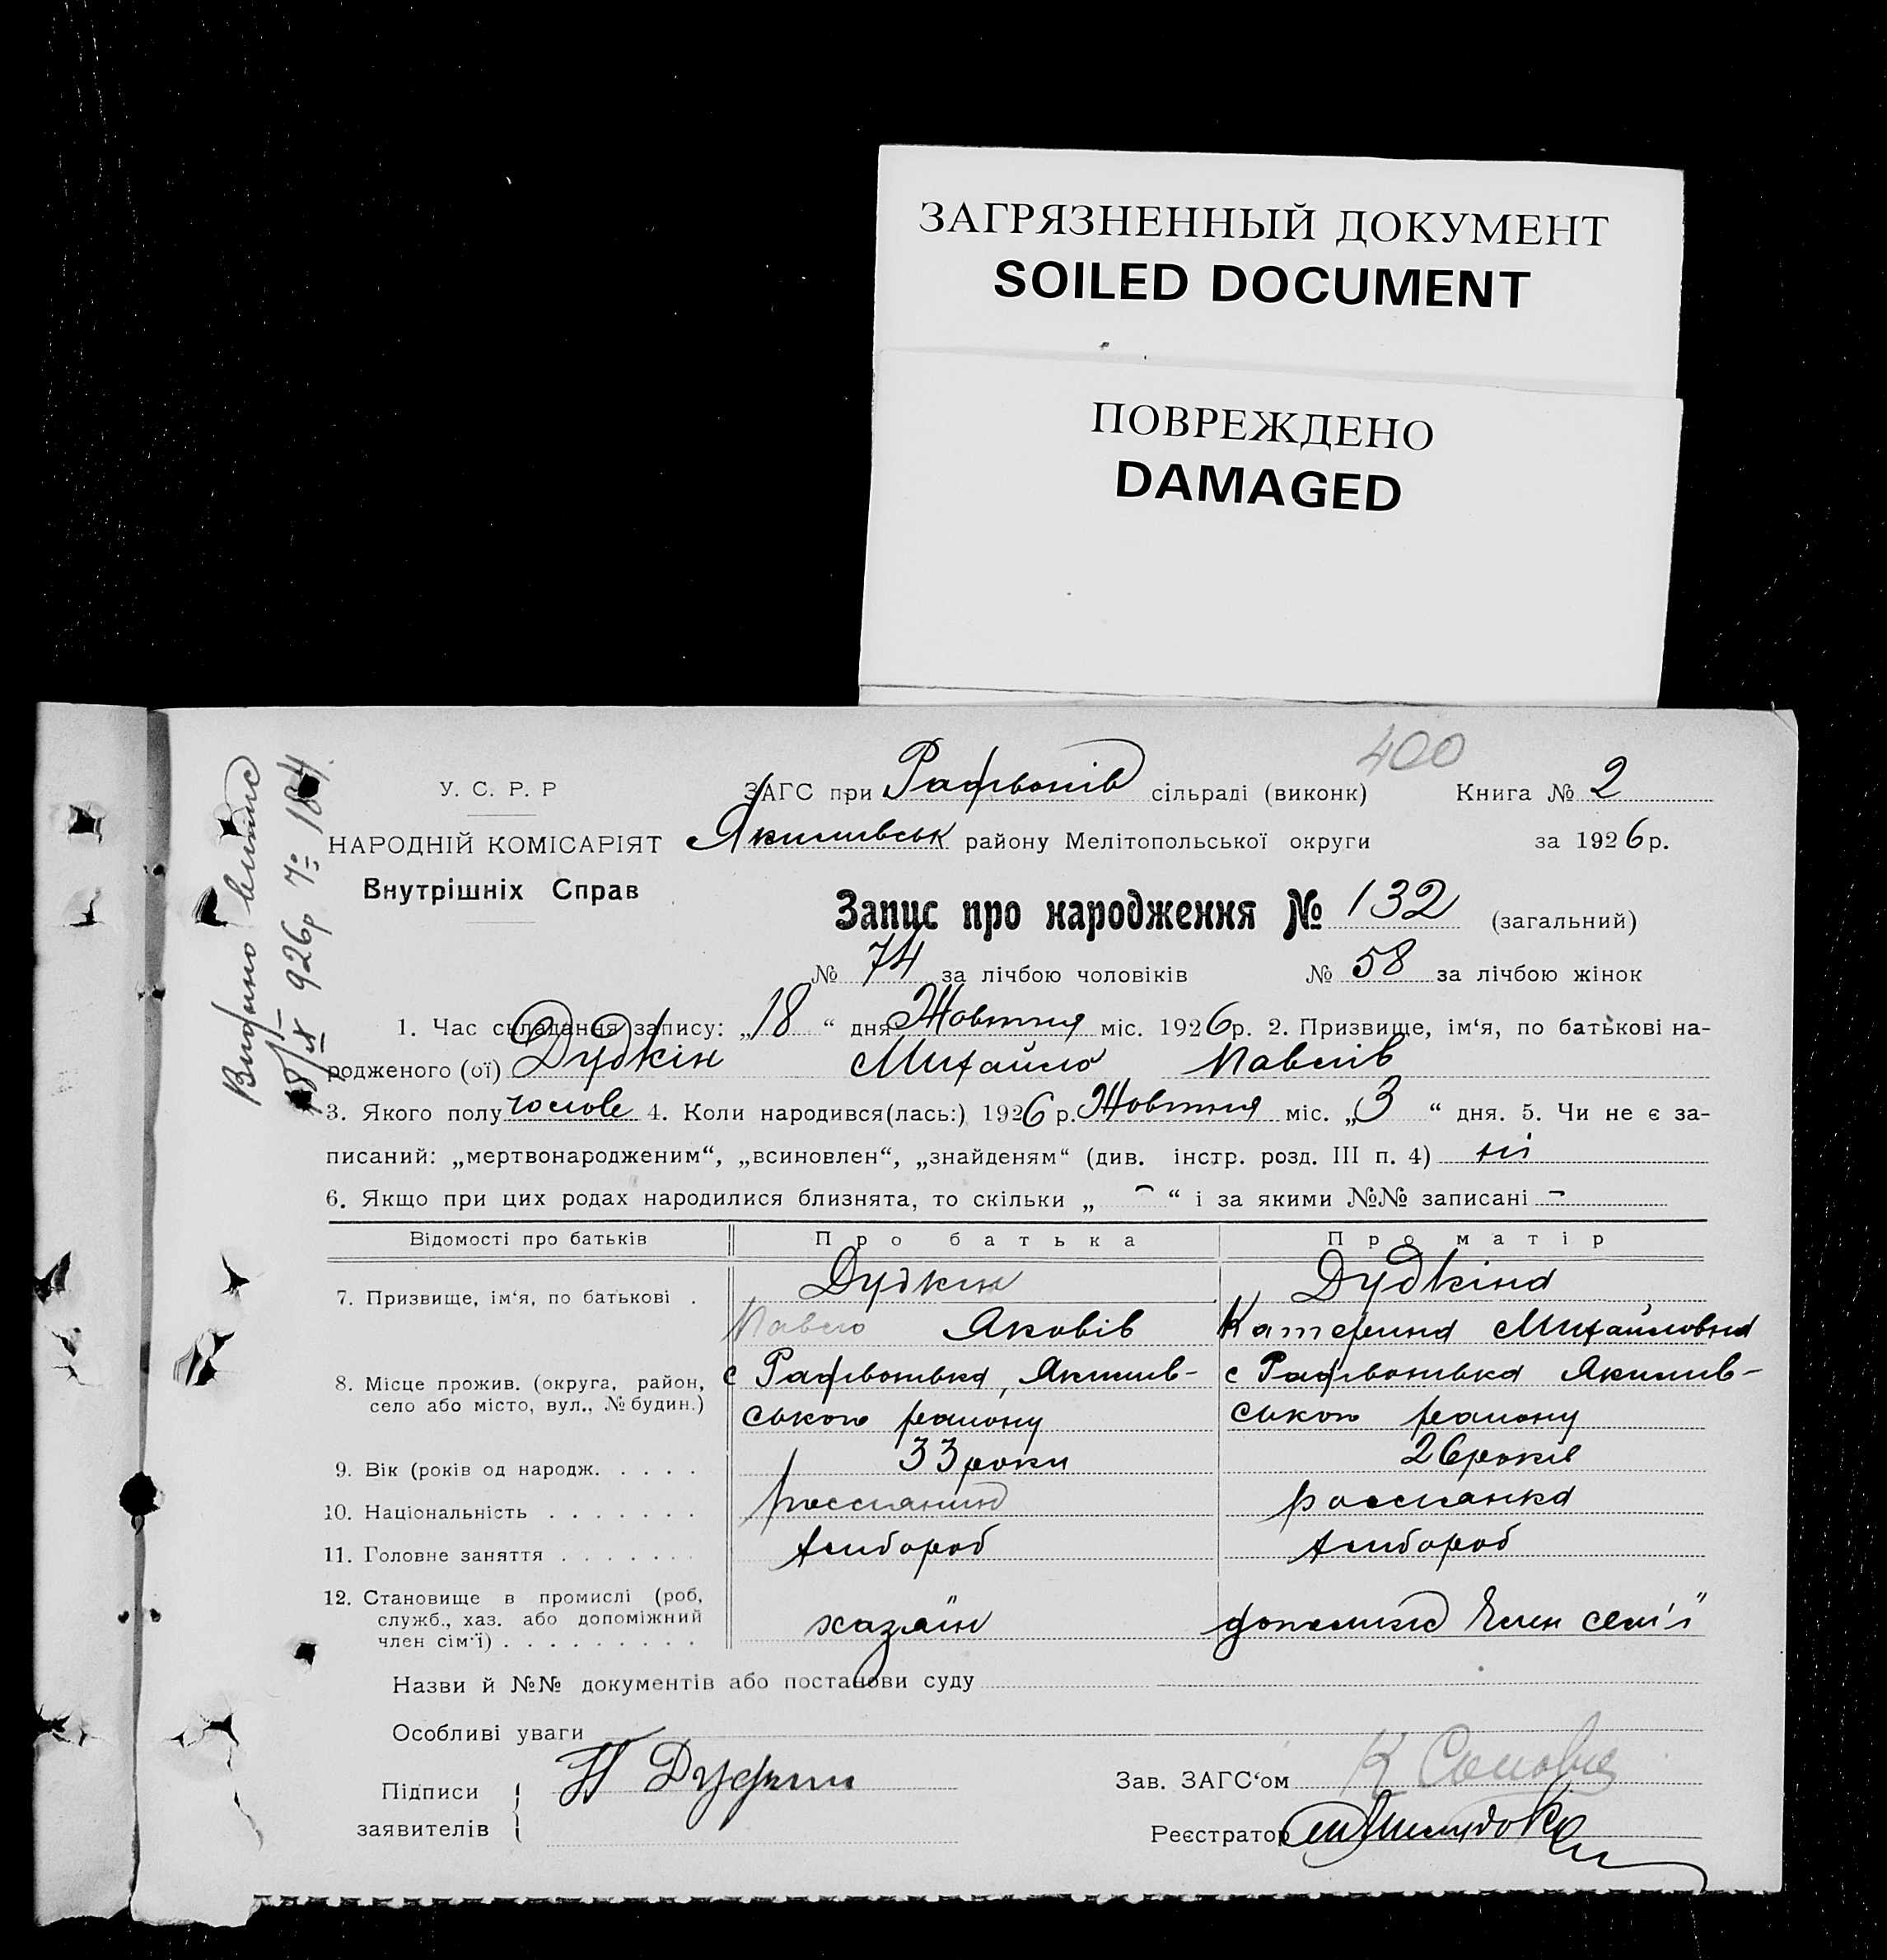 ЗАГРЯЗНЕННЫЙ ДОКУМЕНТ
SOILED DOCUMENT
ПОВРЕЖДЕНО
DAMAGED
400
Видано витяг
18/X 926р № 184
У. С. Р. Р
НАРОДНІЙ КОМІСАРІЯТ
Внутрішніх Справ
ЗАГС при сільраді (виконк) Книга № 2
Якимівськ району Мелітопольської округи за 1926 р.
Запис про народження № 132 (загальний)
№ 74 за лічбою чоловіків № 58 за лічбою жінок
1. Час складання запису: „18“ дня Жовтня міс. 1926 р. 2. Призвище, ім‘я, по батькові на-
родженого (ої) Дудкін Михайло Павлів
3. Якого полу чолов 4. Коли народився(лась:) 1926 р. Жовтня міс. „3“ дня. 5. Чи не є за-
писаний: „мертвонародженим“, „всиновлен“, „знайденям“ (див. інстр. розд. III п. 4) ні
6. Якщо при цих родах народилися близнята, то скільки „ - “ і за якими №№ записані -
Відомості про батьків Про батька Про матір
7. Призвище, ім‘я, по батькові . Дудкін Дудкіна
Павло Яковів Катерина Михайловна
8. Місце прожив. (округа, район, с Якимів- с Якимів-
село або місто, вул., № будин.) ського району ського району
9. Вік (років од народж. . . . . 33 роки 26 років
10. Національність . . . . . . . россіянин россіанка
11. Головне заняття . . . . . . . хлібороб хлібороб
12. Становище в промислі (роб,
служб., хаз. або допоміжний хазяїн член сем'ї
член сім‘ї) . . . . . . . . .
Назви й №№ документів або постанови суду
Особливі уваги
Підписи П Дудкин Зав. ЗАГС‘ом К
заявителів Реєстратор